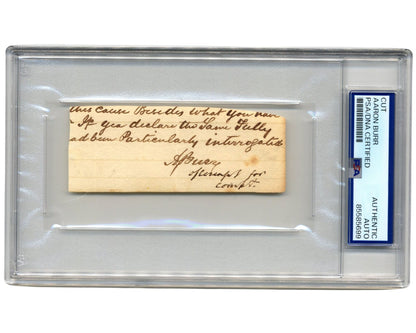 this cause Besides what you now
If yea declare the Same Fully
ad been Particularly interrogated
ABurr
of for
compt.
CUT
AARON BURR
PSA/DNA CERTIFIED
AUTHENTIC
AUTO
85585699